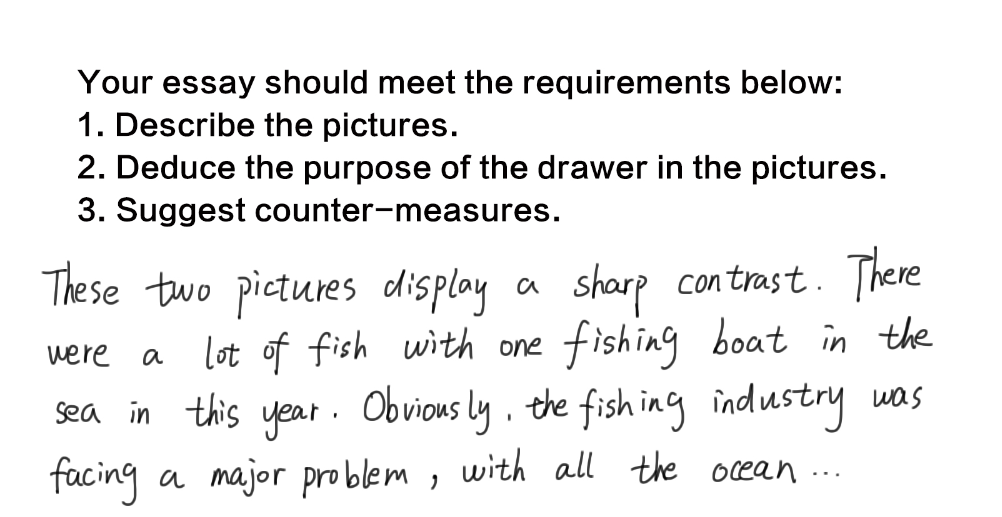 Your essay should meet the requirements below:
1. Describe the pictures.
2. Deduce the purpose of the drawer in the pictures.
3. Suggest counter-measures.
These two pictures display a sharp contrast. There
were a lot of fish with one fishing boat in the
sea in this year. Obviously, the fishing industry was
facing a major problem, with all the ocean...